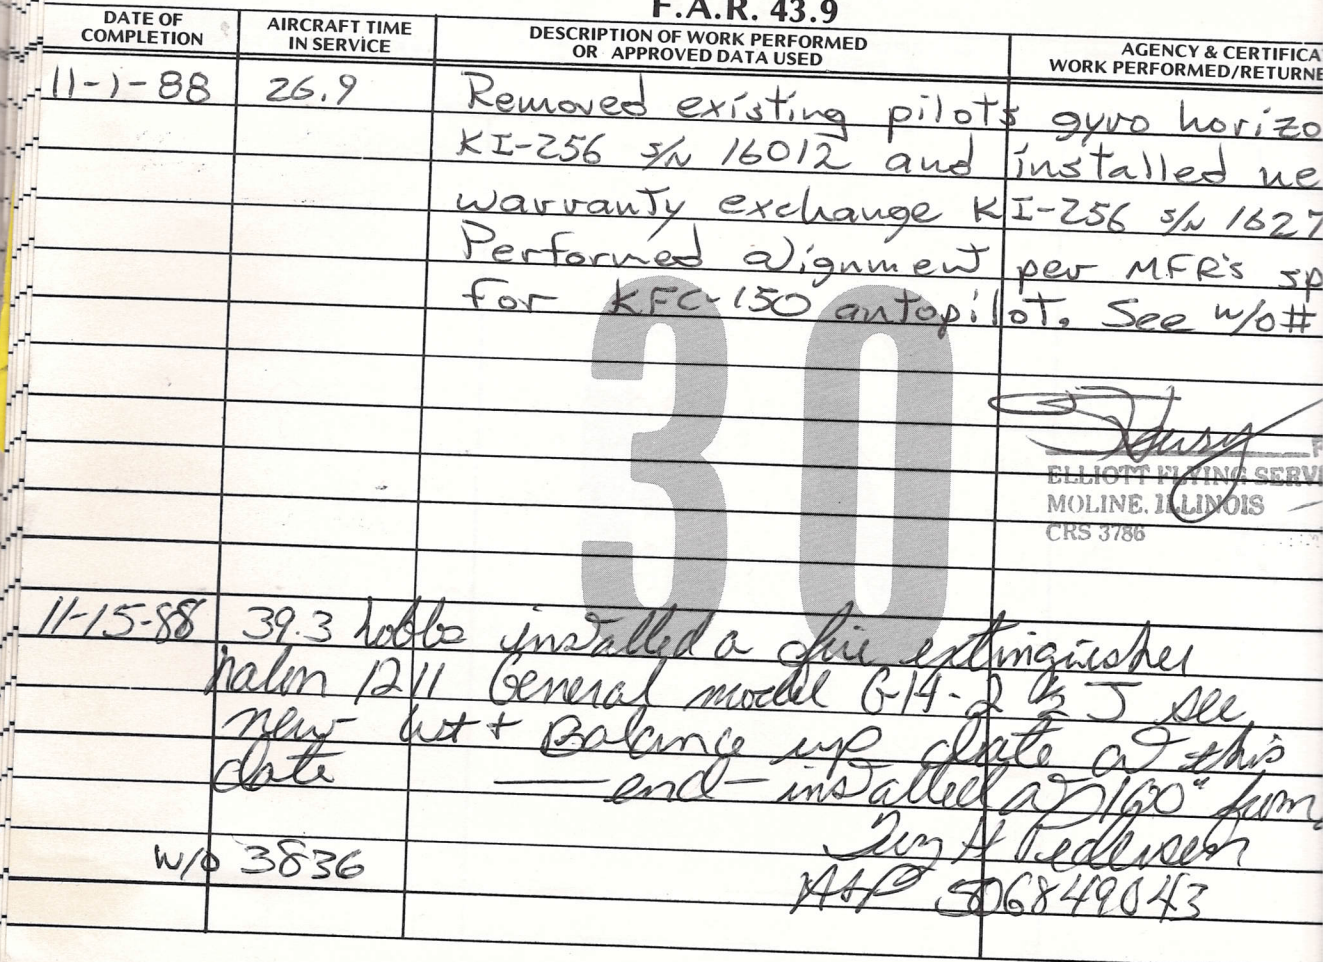 F.A.R. 43.9
DATE OF COMPLETION
AIRCRAFT TIME IN SERVICE
DESCRIPTION OF WORK PERFORMED OR APPROVED DATA USED
AGENCY & CERTIFICA
WORK PERFORMED/RETURNE
11-1-88 26.9 Removed existing pilots gyro horizo
KI-256 s/N 16012 and installed ne
warranty exchange KI-256 s/N 1627
Performed alignment per MFR's sp
for KFC-150 autopilot. See w/o#
30
ELLIOTT FLYING SERVI
MOLINE, ILLINOIS
CRS 3786
11-15-88 39.3 hobbs installed a fire extinguisher
halon 1211 General model G-14-2 ½ J see
new wt + Balance up date at this
date — end — installed at 160" from
H Pedersen
w/o 3836
A&P 506849043